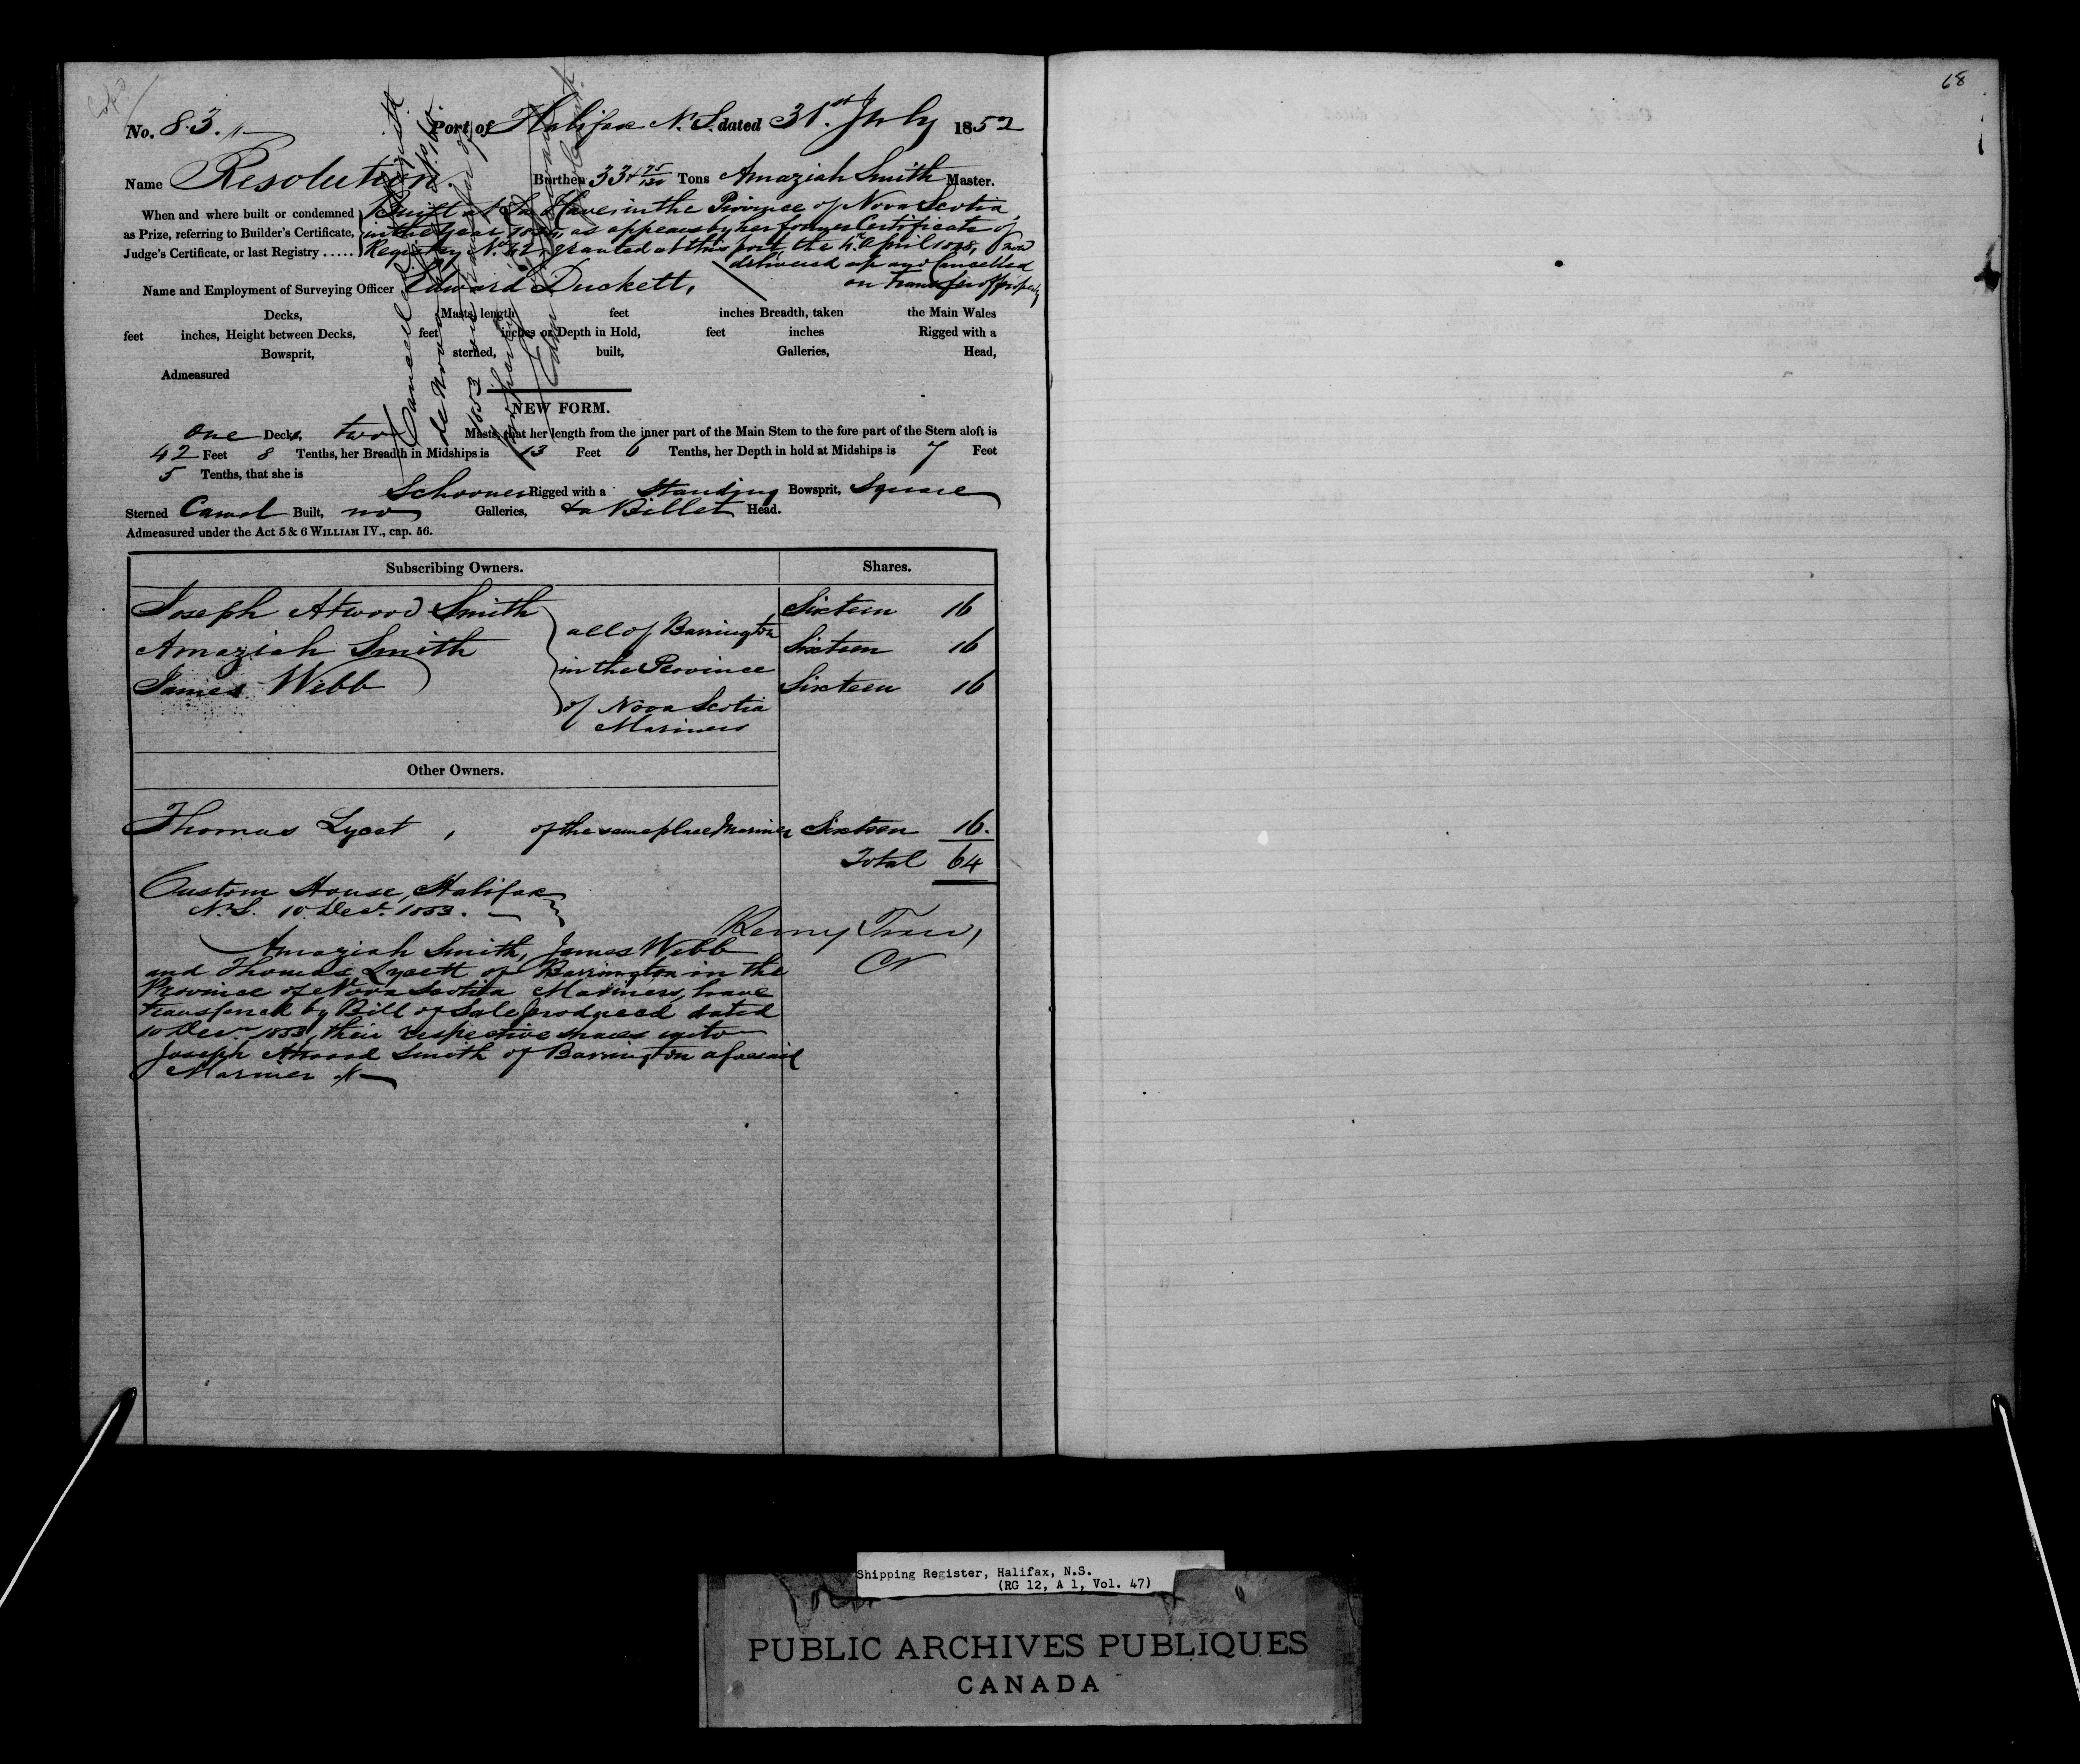 68
No. 83.
Port of Halifax N.S. dated 31st July 1852
Name Resolution Burthen 33 Tons Amaziah Smith Master.
When and where built or condemned
as Prize, referring to Builder's Certificate,
Judge's Certificate, or last Registry .....
Built at La Have in the Province of Nova Scotia
in the year as appears by her former Certificate of
Registry No. 42, granted at this port the 4th April now
delivered up and Cancelled
on transfer of property
Name and Employment of Surveying Officer Edward Duckett,
Decks, Masts, length feet inches Breadth, taken the Main Wales
feet inches, Height between Decks, feet inches or Depth in Hold, feet inches Rigged with a
Bowsprit, sterned, built, Galleries, Head,
Admeasured
Cancelled
de Novo No.
1853 on transfer of
property
NEW FORM.
one Decks, two Masts, that her length from the inner part of the Main Stem to the fore part of the Stern aloft is
42 Feet 8 Tenths, her Breadth in Midships is 13 Feet 6 Tenths, her Depth in hold at Midships is 7 Feet
5 Tenths, that she is
Schooner Rigged with a Standing Bowsprit, Square
Sterned Carvel Built, no Galleries, & a Billet Head.
Admeasured under the Act 5 & 6 WILLIAM IV., cap. 56.
Subscribing Owners. Shares.
Joseph Atwood Smith Sixteen 16
all of Barrington
Amaziah Smith Sixteen 16
in the Province
James Webb Sixteen 16
of Nova Scotia
Mariners
Other Owners.
Thomas Lycet, of the same place Mariner Sixteen 16.
Total 64
Custom House, Halifax
N.S. 10 Decr. 1853.
Amaziah Smith, James Webb
and Thomas Lycett of Barrington in the
Province of Nova Scotia Mariners, have
transferred by Bill of Sale produced dated
10 Decr. 1853, their respective shares unto
Joseph Atwood Smith of Barrington aforesaid
Mariner
Shipping Register, Halifax, N.S.
(RG 12, A 1, Vol. 47)
PUBLIC ARCHIVES PUBLIQUES
CANADA